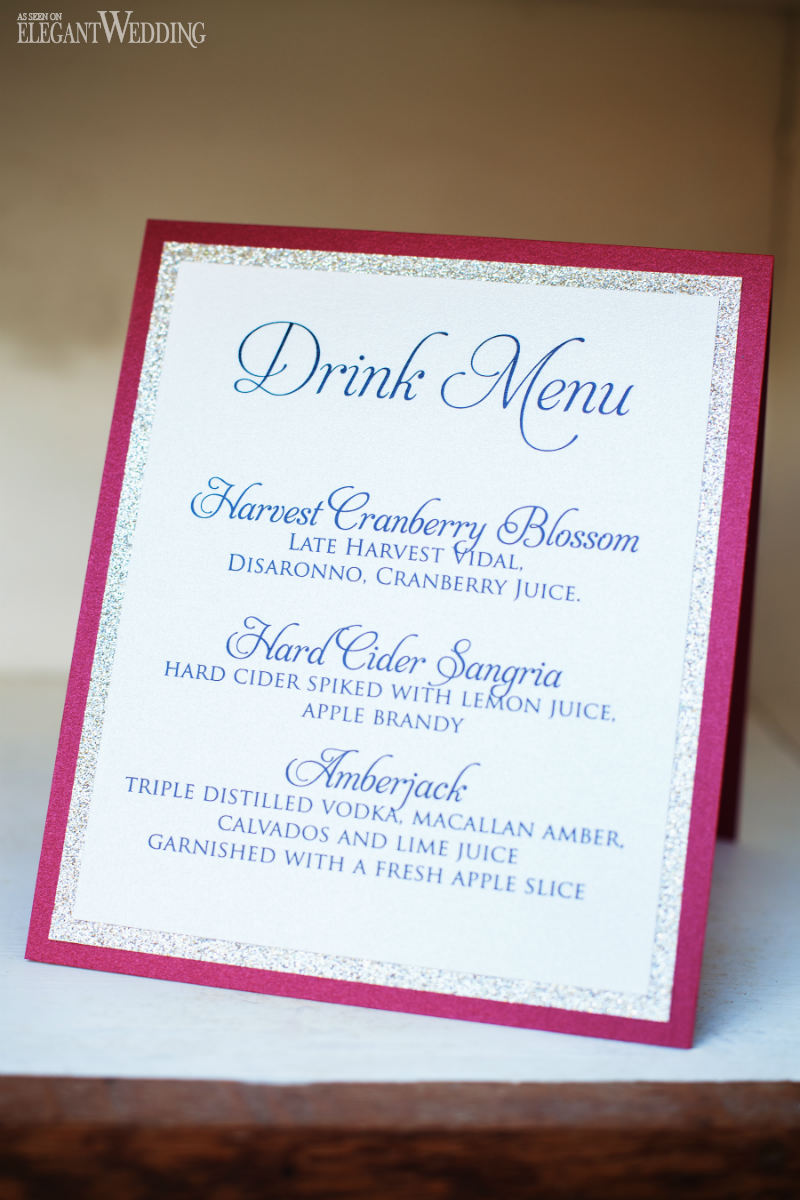 AS SEEN ON
ELEGANTWEDDING
Drink Menu
Harvest Cranberry Blossom
LATE HARVEST VIDAL,
DISARONNO, CRANBERRY JUICE.
Hard Cider Sangria
HARD CIDER SPIKED WITH LEMON JUICE,
APPLE BRANDY
Amberjack
TRIPLE DISTILLED VODKA, MACALLAN AMBER,
CALVADOS AND LIME JUICE
GARNISHED WITH A FRESH APPLE SLICE